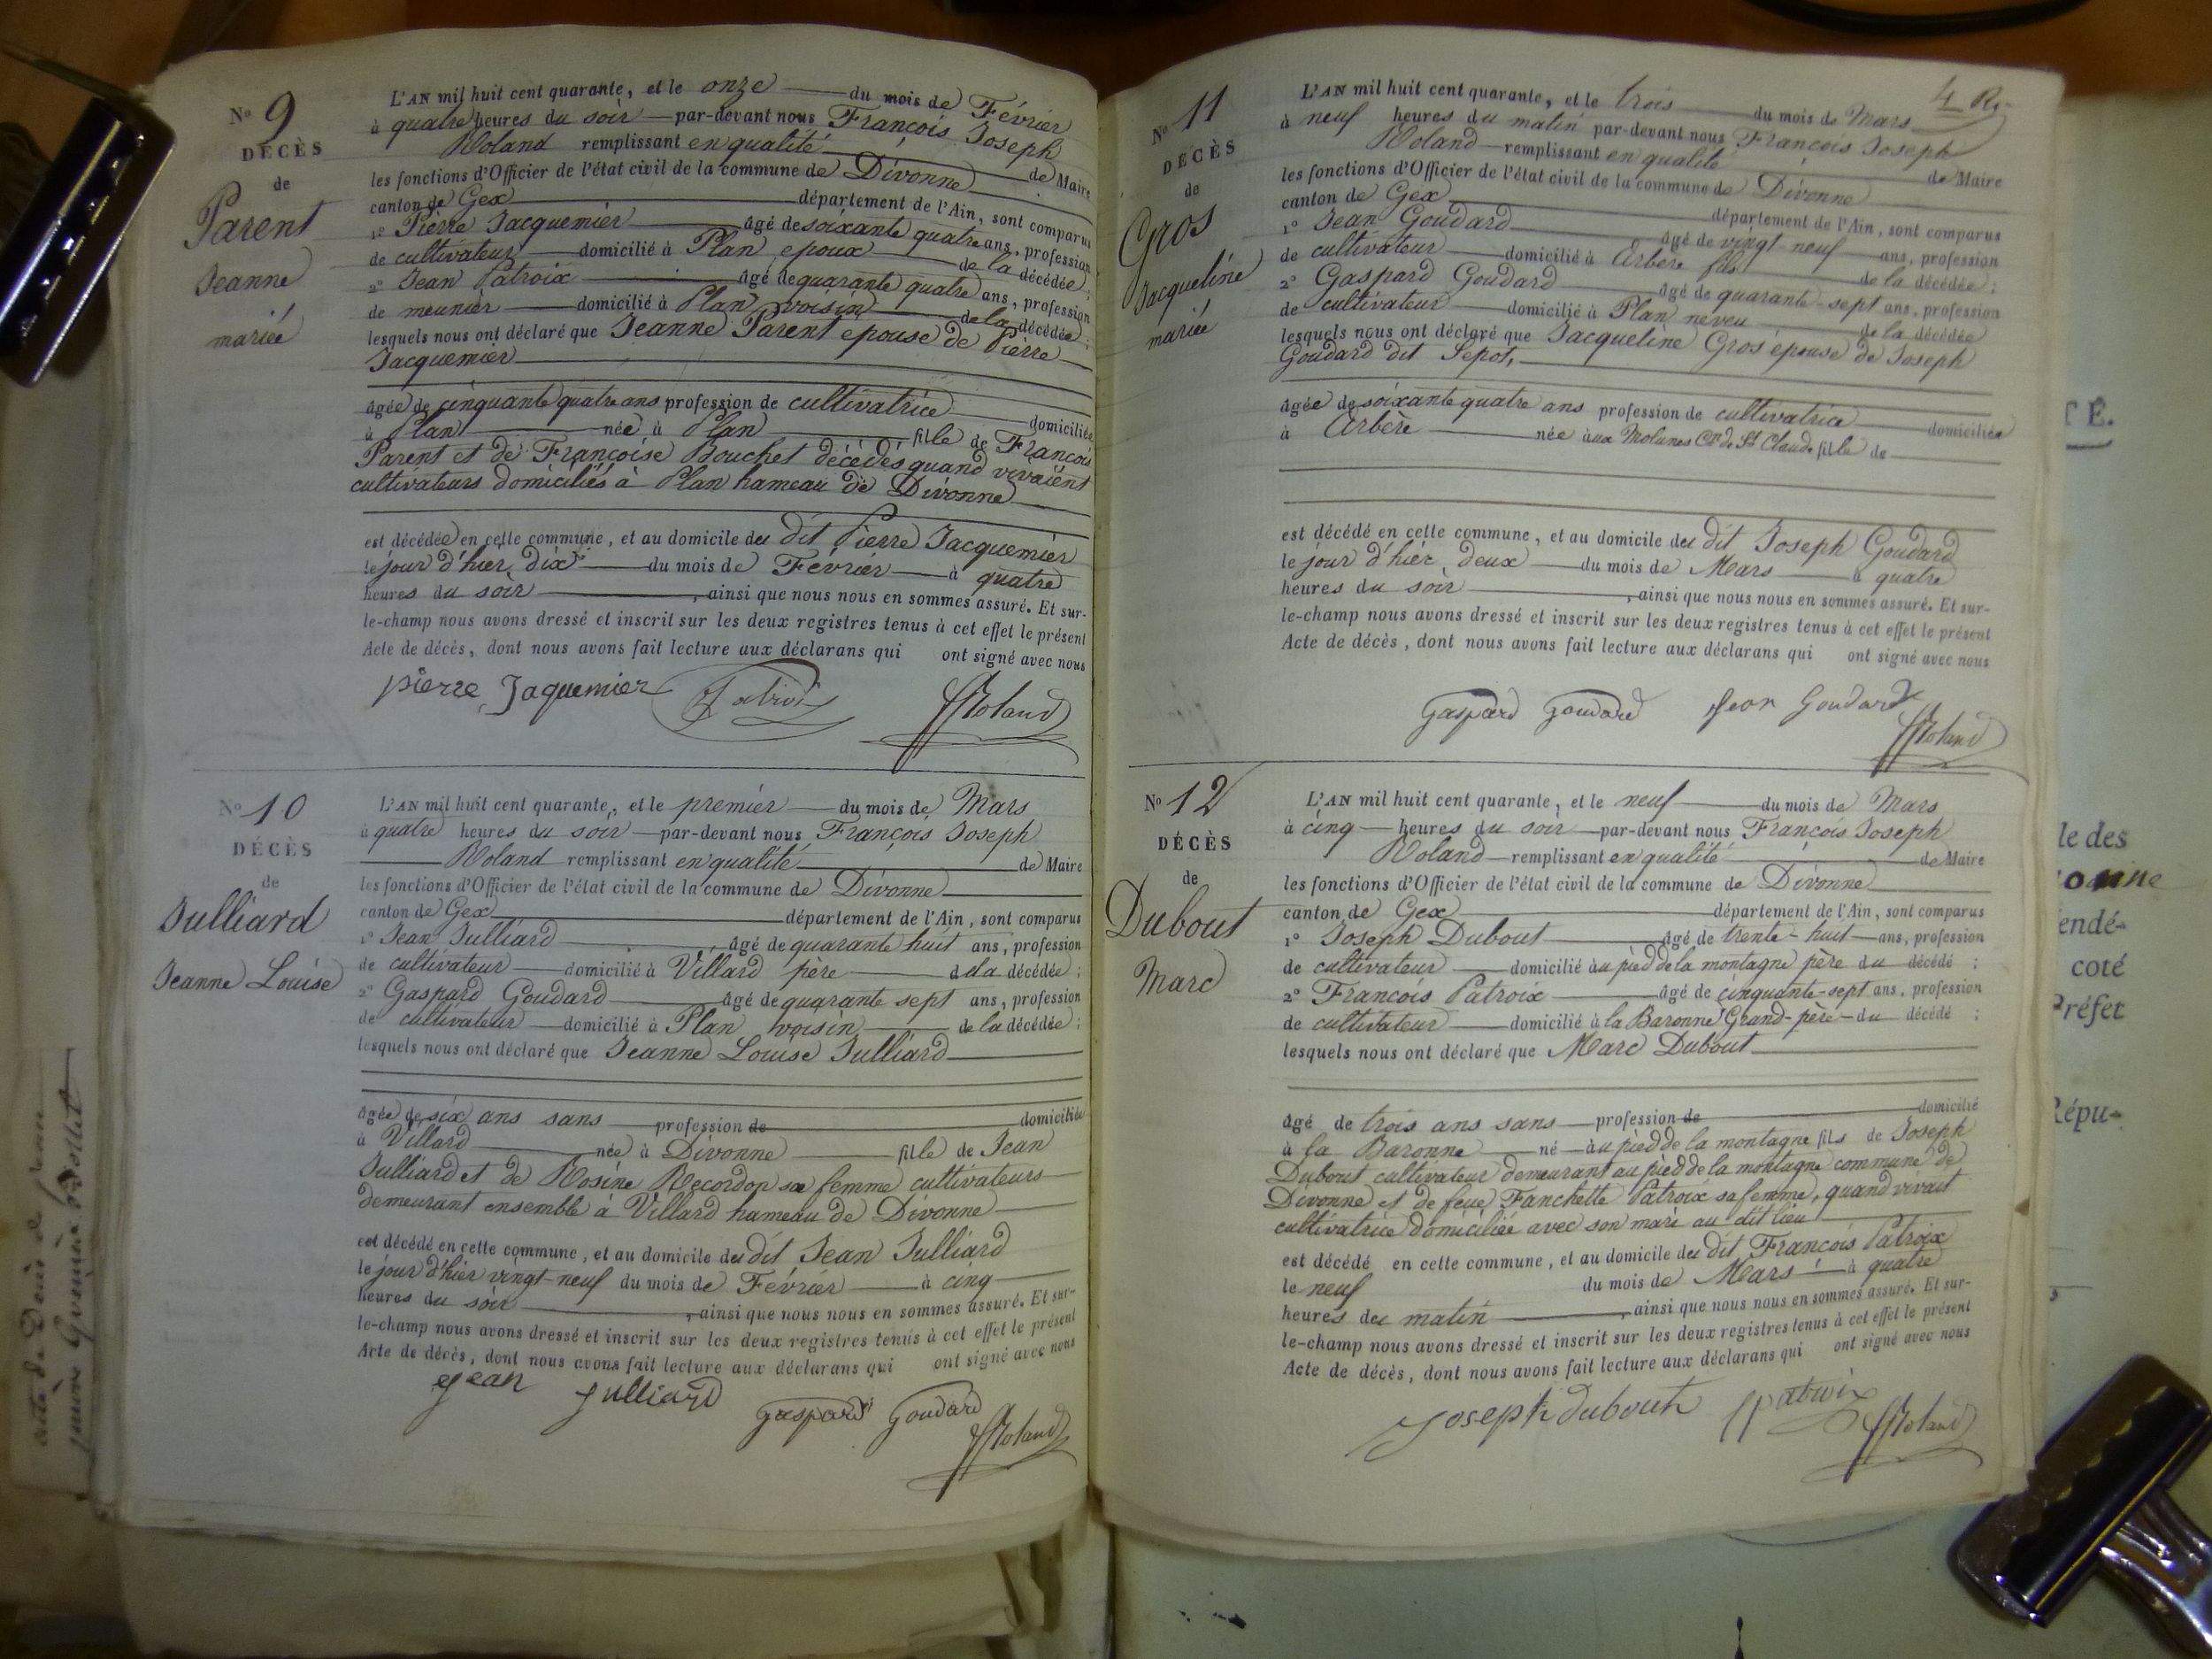 No 9
DÉCÈS
de
Parent
Jeanne
mariée
L'AN mil huit cent quarante, et le onze du mois de Février
à quatre heures du soir par-devant nous François Joseph
Roland remplissant en qualité de Maire
les fonctions d'Officier de l'état civil de la commune de Divonne
canton de Gex département de l'Ain, sont comparus
1º Pierre Jacquemier âgé de soixante quatre ans, profession
de cultivateur domicilié à Plan epoux de la décédée;
2º Jean Patroix âgé de quarante quatre ans, profession
de meunier domicilié à Plan voisin de la décédée;
lesquels nous ont déclaré que Jeanne Parent epouse de Pierre
Jacquemier
âgée de cinquante quatre ans profession de cultivatrice domiciliée
à Plan née à Plan fille de François
Parent et de Françoise Bouchet décédés quand vivaient
cultivateurs domiciliés à Plan hameau de Divonne
est décédée en cette commune, et au domicile du dit Pierre Jacquemier
le jour d'hier dix du mois de Février à quatre
heures du soir, ainsi que nous nous en sommes assuré. Et sur-
le-champ nous avons dressé et inscrit sur les deux registres tenus à cet effet le présent
Acte de décès, dont nous avons fait lecture aux déclarans qui ont signé avec nous
pierre Jaquemier Patroix Roland
No 10
DÉCÈS
de
Julliard
Jeanne Louise
L'AN mil huit cent quarante, et le premier du mois de Mars
à quatre heures du soir par-devant nous François Joseph
Roland remplissant en qualité de Maire
les fonctions d'Officier de l'état civil de la commune de Divonne
canton de Gex département de l'Ain, sont comparus
1º Jean Julliard âgé de quarante huit ans, profession
de cultivateur domicilié à Villard père de la décédée;
2º Gaspard Goudard âgé de quarante sept ans, profession
de cultivateur domicilié à Plan voisin de la décédée;
lesquels nous ont déclaré que Jeanne Louise Julliard
âgée de six ans sans profession de domiciliée
à Villard née à Divonne fille de Jean
Julliard et de Rosine Recordon sa femme cultivateurs
demeurant ensemble à Villard hameau de Divonne
est décédé en cette commune, et au domicile du dit Jean Julliard
le jour d'hier vingt-neuf du mois de Février à cinq
heures du soir, ainsi que nous nous en sommes assuré. Et sur-
le-champ nous avons dressé et inscrit sur les deux registres tenus à cet effet le présent
Acte de décès, dont nous avons fait lecture aux déclarans qui ont signé avec nous
jean julliard gaspard goudard Roland
4
No 11
DÉCÈS
de
Gros
Jacqueline
mariée
L'AN mil huit cent quarante, et le trois du mois de Mars
à neuf heures du matin par-devant nous François Joseph
Roland remplissant en qualité de Maire
les fonctions d'Officier de l'état civil de la commune de Divonne
canton de Gex département de l'Ain, sont comparus
1º Jean Goudard âgé de vingt-neuf ans, profession
de cultivateur domicilié à Arbère fils de la décédée;
2º Gaspard Goudard âgé de quarante-sept ans, profession
de cultivateur domicilié à Plan neveu de la décédée
lesquels nous ont déclaré que Jacqueline Gros épouse de Joseph
Goudard dit Sepot,
âgée de soixante quatre ans profession de cultivatrice domiciliée
à Arbère née aux Molunes Con de St Claude fille de
est décédé en cette commune, et au domicile du dit Joseph Goudard
le jour d'hier, deux du mois de Mars à quatre
heures du soir, ainsi que nous nous en sommes assuré. Et sur-
le-champ nous avons dressé et inscrit sur les deux registres tenus à cet effet le présent
Acte de décès, dont nous avons fait lecture aux déclarans qui ont signé avec nous
gaspard goudard Jean Goudard Roland
No 12
DÉCÈS
de
Dubout
Marc
L'AN mil huit cent quarante, et le neuf du mois de Mars
à cinq heures du soir par-devant nous François Joseph
Roland remplissant en qualité de Maire
les fonctions d'Officier de l'état civil de la commune de Divonne
canton de Gex département de l'Ain, sont comparus
1º Joseph Dubout âgé de trente-huit ans, profession
de cultivateur domicilié au pied de la montagne père du décédé;
2º François Patroix âgé de cinquante-sept ans, profession
de cultivateur domicilié à la Baronne Grand-père du décédé;
lesquels nous ont déclaré que Marc Dubout
âgé de trois ans sans profession de domicilié
à la Baronne né au pied de la montagne fils de Joseph
Dubout cultivateur demeurant au pied de la montagne commune de
Divonne et de feue Fanchette Patroix sa femme, quand vivait
cultivatrice domiciliée avec son mari au dit lieu
est décédé en cette commune, et au domicile du dit François Patroix
le neuf du mois de Mars à quatre
heures du matin, ainsi que nous nous en sommes assuré. Et sur-
le-champ nous avons dressé et inscrit sur les deux registres tenus à cet effet le présent
Acte de décès, dont nous avons fait lecture aux déclarans qui ont signé avec nous
joseph dubouth patroix Roland
TÉ.
le des
onne
endé-
coté
Préfet
Répu-